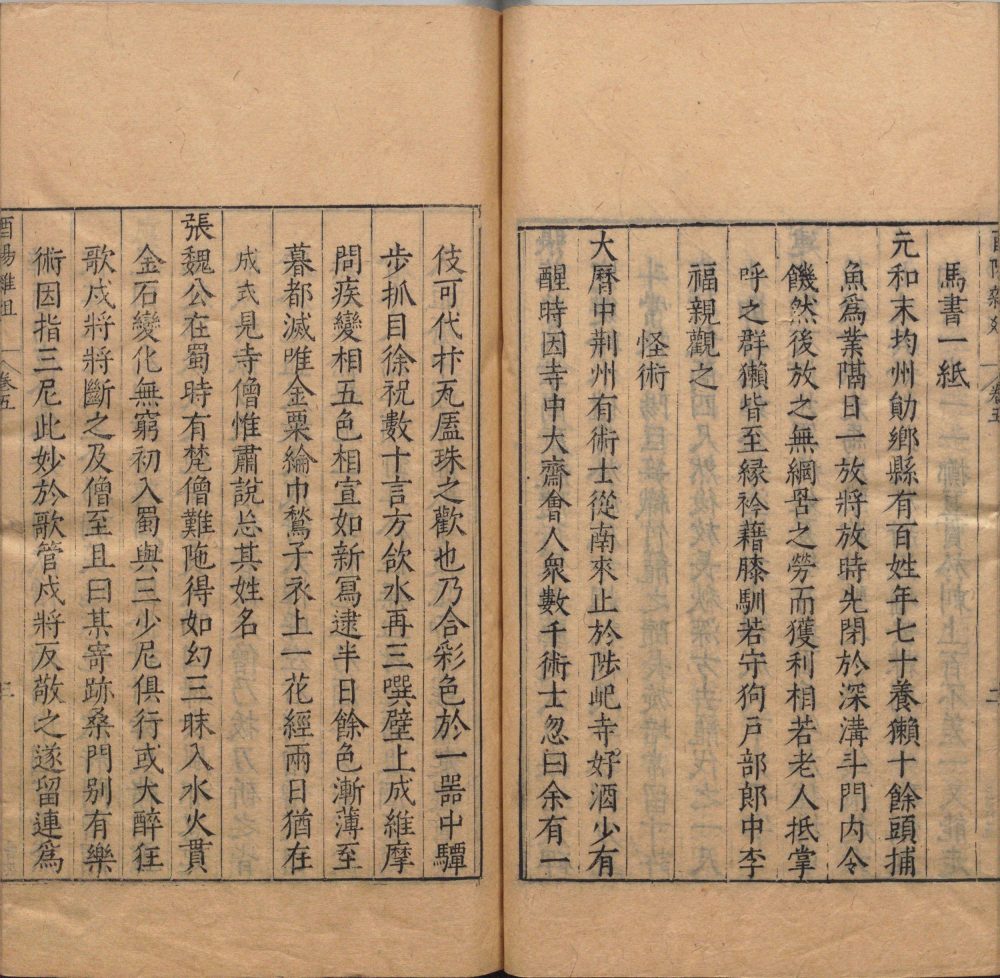 酉陽雜俎 卷五 二
馬書一紙
元和末均州勛鄉縣有百姓年七十養獺十餘頭捕
魚為業隔日一放將放時先閉於深溝斗門内令
饑然後放之無綱罟之勞而獲利相若老人抵掌
呼之群獺皆至縁衿藉膝馴若守狗戸部郎中李
福親觀之
怪術
大曆中荆州有術士從南來止於陟屺寺好酒少有
醒時因寺中大齋會人衆數千術士忽曰余有一
伎可代抃瓦廅珠之歡也乃合彩色於一噐中驔
步抓目徐祝數十言方欱水再三噀壁上成維摩
問疾變相五色相宣如新冩逮半日餘色漸薄至
暮都滅唯金粟綸巾鶖子衣上一花經兩日猶在
成式見寺僧惟肅說忘其姓名
張魏公在蜀時有梵僧難陁得如幻三昧入水火貫
金石變化無窮初入蜀與三少尼俱行或大醉狂
歌戍將將斷之及僧至且曰某寄跡桑門别有樂
術因指三尼此妙於歌管戍將反敬之遂留連為
酉陽雜俎 卷五 三